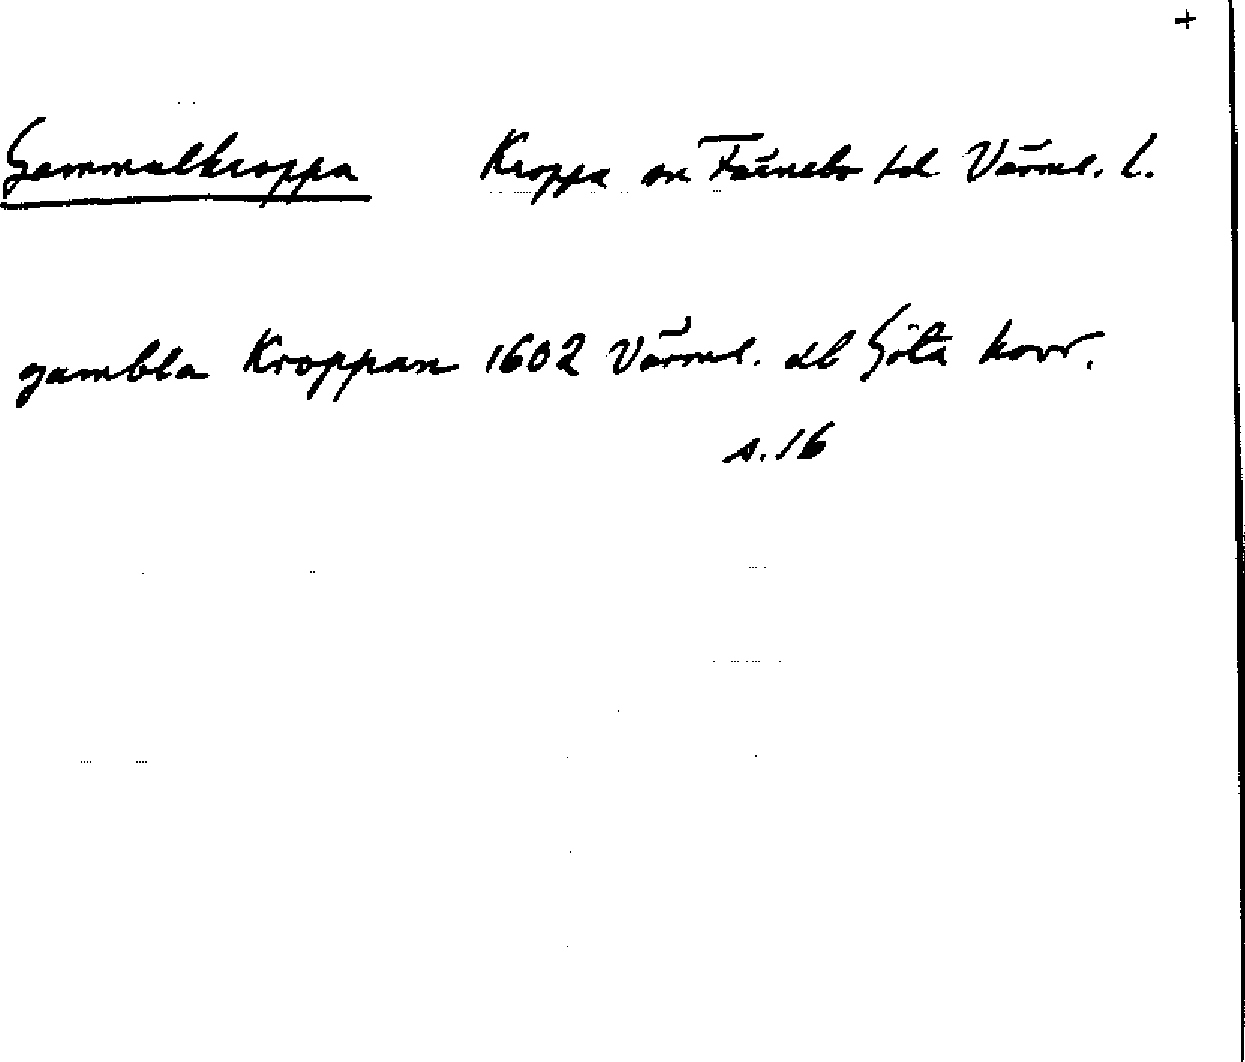 +
Gammalkroppa Kroppa sn Färnebo hd Värml. l.
gambla Kroppan 1602 Värml. db Göta hovr.
s. 16